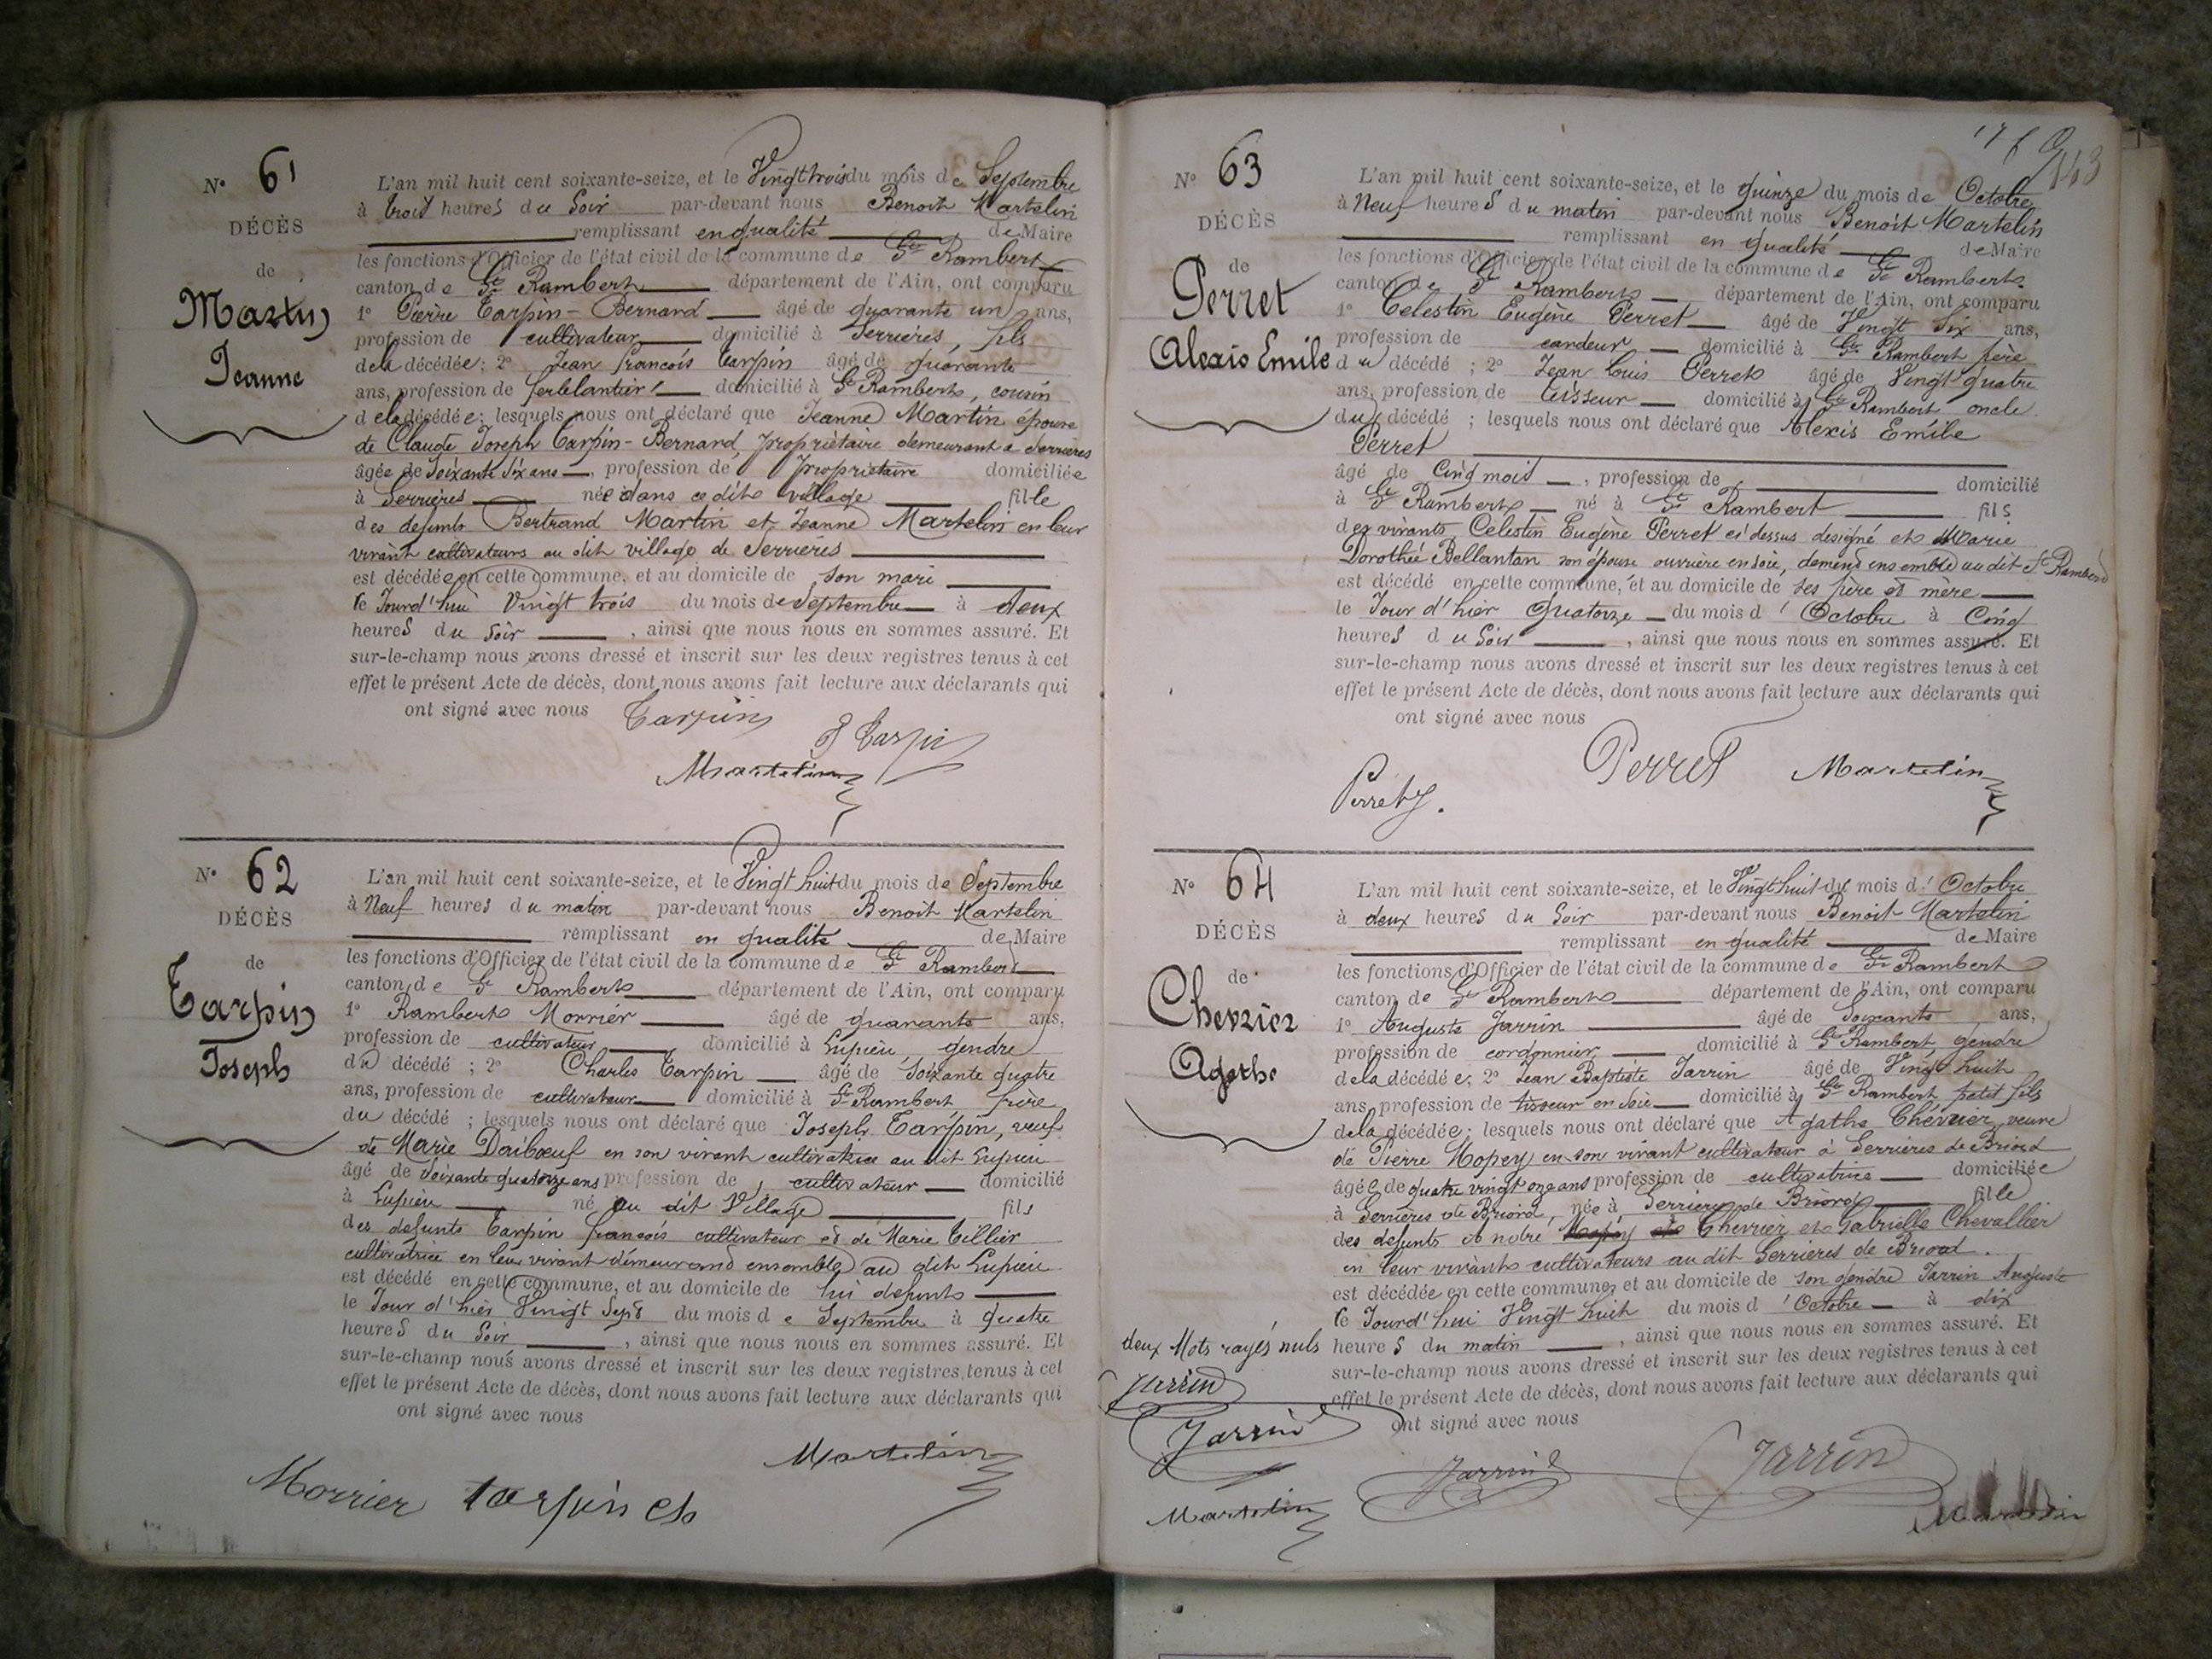 N° 61
DÉCÈS
de
Martin
Jeanne
L'an mil huit cent soixante-seize, et le Vingt trois du mois de Septembre
à trois heures du Soir par-devant nous Benoit Martelin
remplissant en qualité de Maire
les fonctions d'Officier de l'état civil de la commune de St Rambert
canton de St Rambert département de l'Ain, ont comparu
1° Pierre Tarpin-Bernard âgé de quarante un ans,
profession de cultivateur domicilié à Serrières, fils
de la décédée; 2° Jean françois Tarpin âgé de quarante
ans, profession de ferblantier domicilié à St Rambert, cousin
de la décédée; lesquels nous ont déclaré que Jeanne Martin épouse
de Claude Joseph Tarpin-Bernard, propriètaire demeurant a Serrières
âgée de Soixante Six ans, profession de propriétaire domiciliée
à Serrières née dans ce dit village fille
des defunts Bertrand Martin et Jeanne Martelin en leur
vivant cultivateurs au dit village de Serrières
est décédée en cette commune, et au domicile de son mari
le Jourd'hui Vingt trois du mois de Septembre à deux
heures du Soir, ainsi que nous nous en sommes assuré. Et
sur-le-champ nous avons dressé et inscrit sur les deux registres tenus à cet
effet le présent Acte de décès, dont nous avons fait lecture aux déclarants qui
ont signé avec nous Tarpin
Tarpin
Martelin
N° 62
DÉCÈS
de
Tarpin
Joseph
L'an mil huit cent soixante-seize, et le Vingt huit du mois de Septembre
à Neuf heures du matin par-devant nous Benoit Martelin
remplissant en qualité de Maire
les fonctions d'Officier de l'état civil de la commune de St Rambert
canton de St Rambert département de l'Ain, ont comparu
1° Rambert Morrier âgé de quarante ans,
profession de cultivateur domicilié à Lupieu, gendre
du décédé; 2° Charles Tarpin âgé de Soixante quatre
ans, profession de cultivateur domicilié à St Rambert frère
du décédé; lesquels nous ont déclaré que Joseph Tarpin, veuf
de Marie Doibœuf en son vivant cultivatrice au dit Lupieu
âgé de Soixante quatorze ans profession de cultivateur domicilié
à Lupieu né au dit Village fils
des defunts Tarpin françois cultivateur et de Marie Tillier
cultivatrice en leur vivant demeurand ensemble au dit Lupieu
est décédé en cette commune, et au domicile de lui defunt
le Jour d'hier Vingt Sept du mois de Septembre à quatre
heures du Soir, ainsi que nous nous en sommes assuré. Et
sur-le-champ nous avons dressé et inscrit sur les deux registres tenus à cet
effet le présent Acte de décès, dont nous avons fait lecture aux déclarants qui
ont signé avec nous
Martelin
Morrier tarpin ch
143
N° 63
DÉCÈS
de
Perret
Alexis Emile
L'an mil huit cent soixante-seize, et le quinze du mois de Octobre
à Neuf heures du matin par-devant nous Benoit Martelin
remplissant en qualité de Maire
les fonctions d'Officier de l'état civil de la commune de St Rambert
canton de St Rambert département de l'Ain, ont comparu
1° Celestin Eugène Perret âgé de Vingt Six ans,
profession de cardeur domicilié à St Rambert père
du décédé; 2° Jean Louis Perret âgé de Vingt quatre
ans, profession de tisseur domicilié à St Rambert oncle
du décédé; lesquels nous ont déclaré que Alexis Emile
Perret
âgé de Cinq mois, profession de domicilié
à St Rambert né à St Rambert fils
des vivants Celestin Eugène Perret ci dessus designé et Marie
Dorothée Bellantan son épouse ouvrière en soie, demend ensemble au dit St Rambert
est décédé en cette commune, et au domicile de ses père et mère
le Jour d'hier quatorze du mois d'Octobre à Cinq
heures du Soir, ainsi que nous nous en sommes assuré. Et
sur-le-champ nous avons dressé et inscrit sur les deux registres tenus à cet
effet le présent Acte de décès, dont nous avons fait lecture aux déclarants qui
ont signé avec nous
Perret Martelin
Perret
N° 64
DÉCÈS
de
Chevrier
Agathe
L'an mil huit cent soixante-seize, et le Vingt huit du mois d'Octobre
à deux heures du Soir par-devant nous Benoit Martelin
remplissant en qualité de Maire
les fonctions d'Officier de l'état civil de la commune de St Rambert
canton de St Rambert département de l'Ain, ont comparu
1° Auguste Jarrin âgé de Soixante ans,
profession de cordonnier domicilié à St Rambert, gendre
de la décédée; 2° Jean Baptiste Jarrin âgé de Vingt huit
ans, profession de tisseur en soie domicilié à St Rambert petit fils
de la décédée; lesquels nous ont déclaré que Agathe Chevrier, veuve
de Pierre Mopey en son vivant cultivateur à Serrières de Briord
âgée de quatre vingt onze ans profession de cultivatrice domiciliée
à Serrières de Briord, née à Serrières de Briord fille
des defunts Andre Mopey et Chevrier et Gabrielle Chevallier
en leur vivants cultivateurs au dit Serrières de Briord.
est décédée en cette commune, et au domicile de son gendre Jarrin Auguste
le Jourd'hui Vingt huit du mois d'Octobre à dix
heures du matin, ainsi que nous nous en sommes assuré. Et
sur-le-champ nous avons dressé et inscrit sur les deux registres tenus à cet
effet le présent Acte de décès, dont nous avons fait lecture aux déclarants qui
ont signé avec nous
deux Mots rayés nuls
Jarrin
Jarrin
Martelin
Jarrin Jarrin
Martelin